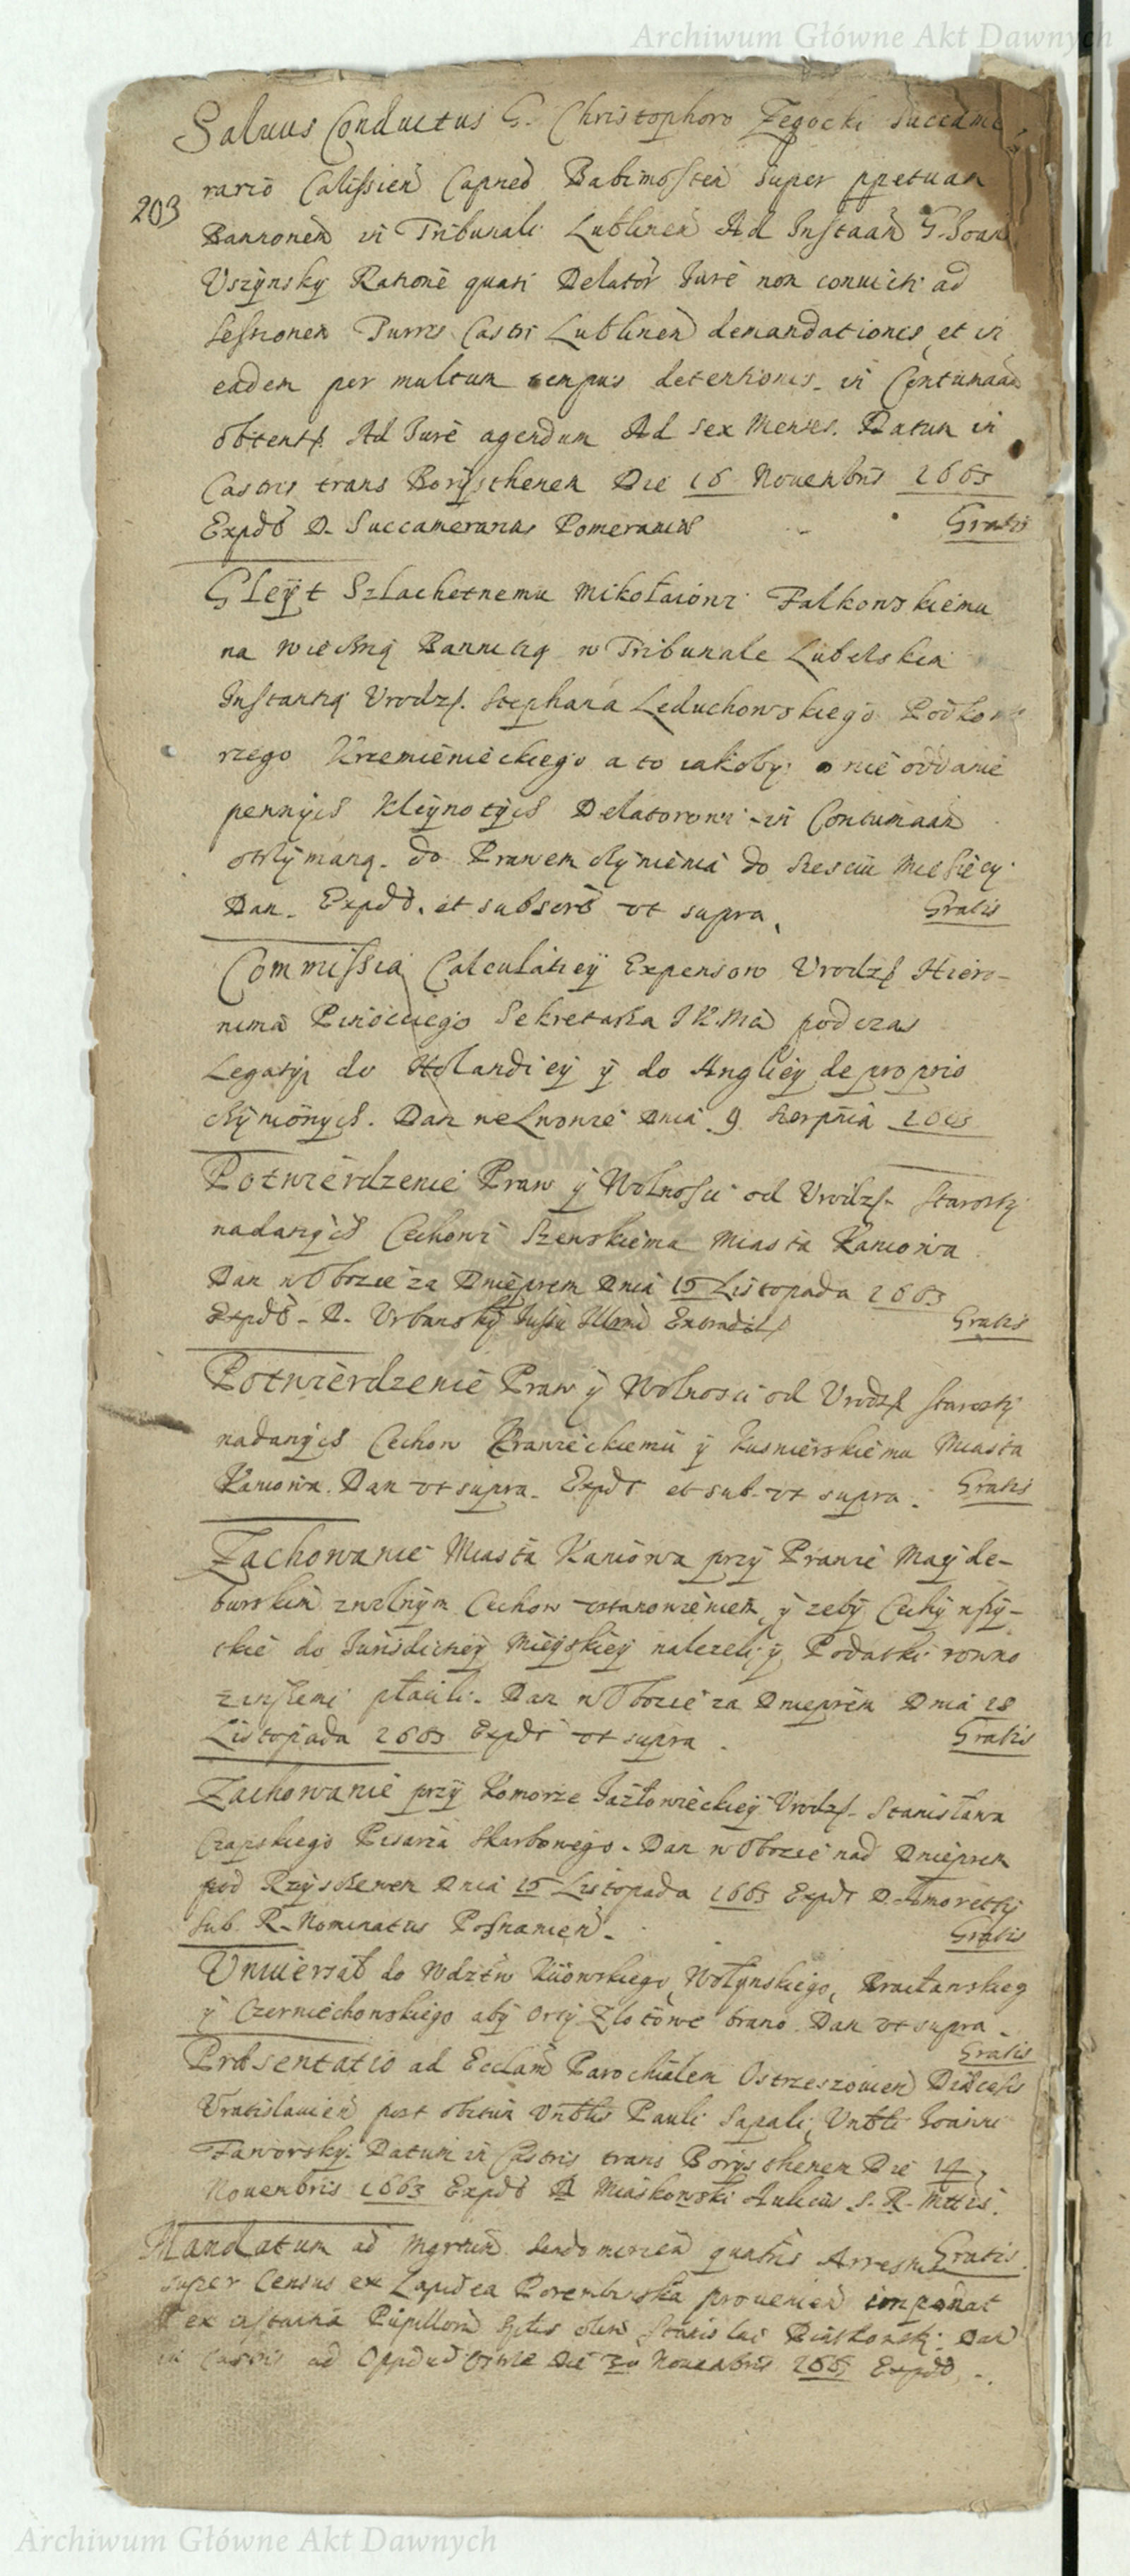 Archiwum Główne Akt Dawnych
Saluus Conductus G. Christophoro Zegocki Succame
rario Calissien Capneo Babimosten super ppetuam
203
Bannonem in Tribunali Lublinen Ad Instaam G. Joan
Uszynsky Ratione quasi Delator Jure non convicti ad
sessionem Turris Castri Lublinen demandationis et in
eadem per multum tempus detentionis in Contumaam
obtent. Ad Jure agendum Ad sex Menses. Datum in
Castris trans Borysthenem Die 16 Novembris 1663
Expdt D. Succamerarius Pomeraniae Gratis
Gleyt Szlachetnemu Mikołaiowi Falkowskiemu
na wieczną Bannitią w Tribunale Lubelskim
Instantią Urodz. Stephana Leduchowskiego Podkomo
rzego Krzemienieckiego a to iakoby o nie oddanie
pewnych Kleynotych Delatorowi in Contumaam
otrzymaną. do Prawem czynienia do szesciu Miesięcy
Dan. Expdt. et subscrs ut supra. Gratis
Commissia Calculatiey Expensow Urodz Hiero-
nima Pinocciego Sekretarza JKMci podczas
Legatij do Holandiey y do Angliey de proprio
czynionych. Dan we Lwowie Dnia 9 Sierpnia 1663
Potwierdzenie Praw y Wolnosci od Urodz. Starosty
nadanych Cechowi Szewskiemu Miasta Kaniowa
Dan w Obozie za Dnieprem Dnia 15 Listopada 1663
Expdt D. Urbansky Jussu Illmi Gratis
Potwierdzenie Praw y Wolnosci od Urodz Starosty
nadanych Cechow Krawieckiemu y Kusnierskiemu Miasta
Kaniowa. Dan ut supra. Expdt et sub. ut supra. Gratis
Zachowanie Miasta Kaniowa przy Prawie Mayde-
burskim zupelnym Cechow ustanowieniem y zeby Cechy wszy-
tkie do Jurisdictiey Mieyskiey nalezeli y Podatki rowno
z inszemi płacili. Dan w Obozie za Dnieprem Dnia 18
Listopada 1663 Expdt ut supra. Gratis
Zachowanie przy Komorze Jazłowieckiey Urodz. Stanisława
Czapskiego Pisarza Skarbowego. Dan w Obozie nad Dnieprem
pod Rzyszczewem Dnia 15 Listopada 1663 Expdt D. Amoretty
Sub. R. Nominatus Posnanien. Gratis
Uniwersał do Wdztw Kiiowskiego, Wołynskiego, Bracławskieg
y Czerniechowskiego aby Orty Złotowe brano. Dan ut supra.
Gratis
Praesentatio ad Ecclam Parochialem Ostrzeszovien Diaecesis
Vratislavien post obitum Vnblis Pauli Sapali Vnbli Joanni
Jaworsky. Datum in Castris trans Borysthenem Die 14
Novembris 1663 Expdt D Miaskowski Aulicus S. R. Mttis.
Mandatum ad Mgrtum Sendomirien quatus Arrestum Gratis
super Census ex Lapidea Porembinska provenien imponat
ex instantia Pupillorum olim Stanislai Dan
in Castris ad Oppidum Die 20 Novembris 1663 Expdt.
Archiwum Główne Akt Dawnych